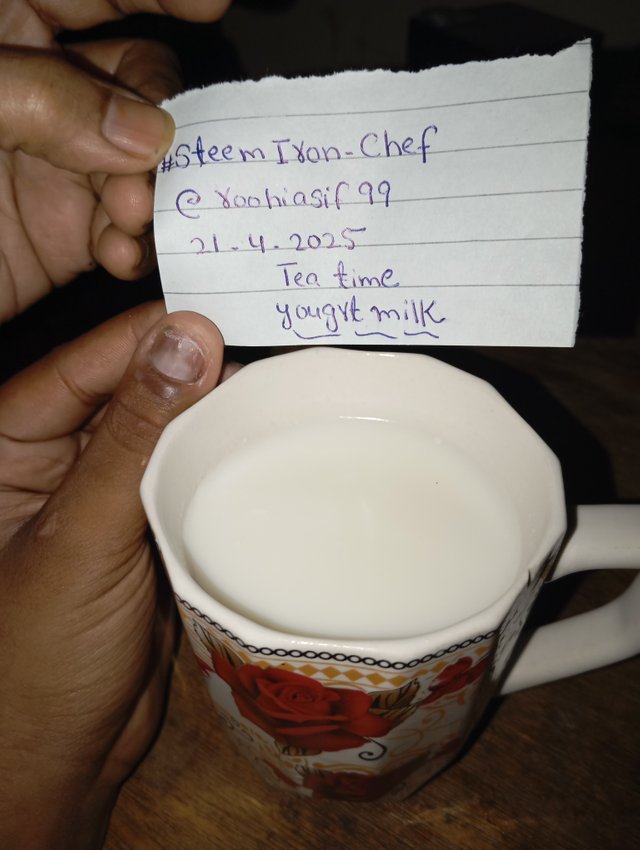 #Steem Iron-Chef
@ roohiasif 99
21.4.2025
Tea time
yougrt milk